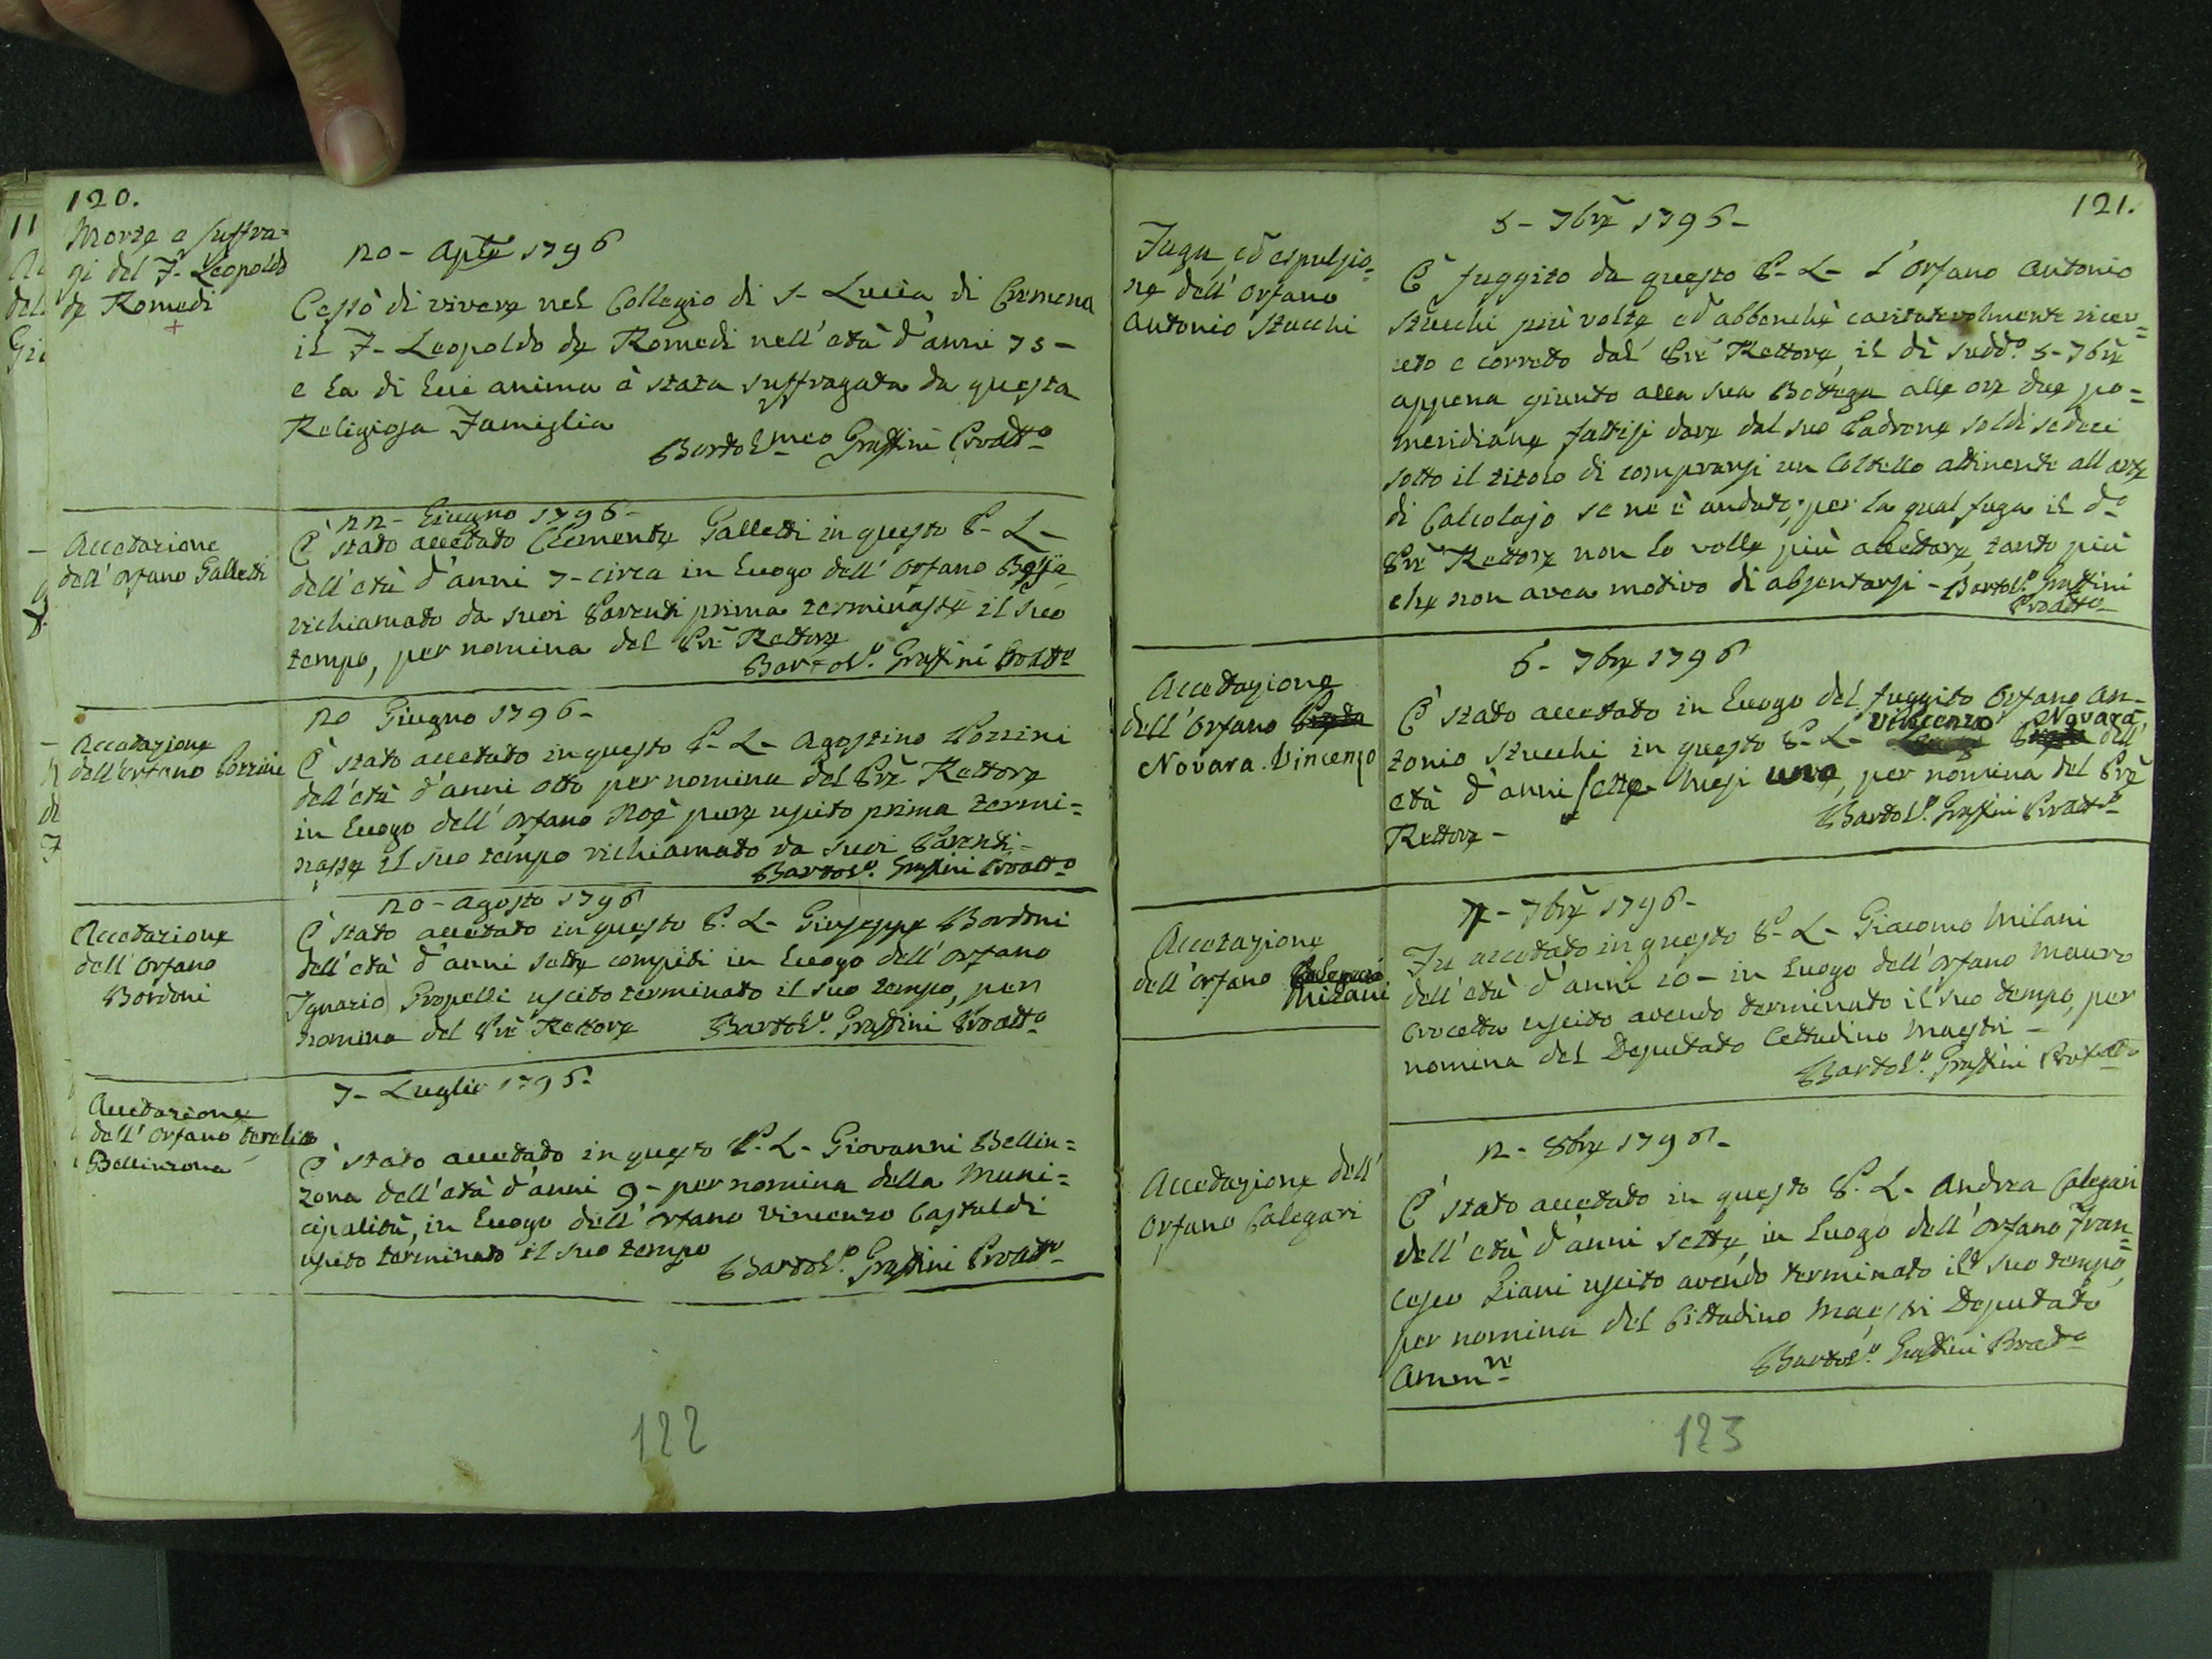 120.
Morte e suffra=
gi del F. Leopoldo
de Romedi
+
20 - Aple 1796
Cessò di vivere nel Collegio di S- Lucia di Cremona
il F- Leopoldo de Romedi nell'età d'anni 75 -
e la di lui anima è stata suffragata da questa
Religiosa Famiglia
Bortolmeo Graffini Proatto
22 - Giugno 1796 -
Accetazione
dell'Orfano Galletti
È stato accetato Clemente Galletti in questo P- L-
dell'età d'anni 7 - circa in luogo dell'Orfano
richiamato da suoi Parenti prima terminasse il suo
tempo, per nomina del Pre Rettore
Bartolo. Graffini Proatto
20 Giugno 1796 -
Accetazione
dell'orfano Pozzini
È stato accetato in questo P- L- Agostino Pozzini
dell'età d'anni otto per nomina del Pre Rettore
in luogo dell'Orfano Noè pure uscito prima termi=
nasse il suo tempo richiamato da suoi Parenti -
Bartolo. Graffini Proatto
20 - Agosto 1796
Accetazione
dell'Orfano
Bordoni
È stato accetato in questo P. L- Giuseppe Bordoni
dell'età d'anni sette compiti in luogo dell'Orfano
Ignazio Propelli uscito terminato il suo tempo, per
nomina del Pre Rettore Bartolo. Graffini Proatto
7- Luglio 1796 -
Accetazione
dell'Orfano
Bellinzona
È stato accetato in questo P. L- Giovanni Bellin=
zona dell'età d'anni 9 - per nomina della Muni=
cipalità, in luogo dell'Orfano Vincenzo Castaldi
uscito terminato il suo tempo
Bartolo. Graffini Proatto
122
121.
5 - 7bre 1796 -
Fuga, ed espulsio=
ne dell'Orfano
Antonio Stucchi
È fuggito da questo P- L- l'Orfano Antonio
Stucchi più volte ed abbenchè caritatevolmente ricev=
uto e corretto dal Pre Rettore, il dì suddo. 5 - 7bre
appena giunto alla sua Bottega alle ore due po=
meridiane fattisi dare dal suo Padrone soldi sedeci
sotto il titolo di comprarsi un Coltello attinente all'arte
di Calzolajo se ne è andato; per la qual fuga il do
Pre Rettore non lo volle più accettare, tanto più
che non avea motivo di absentarsi - Bartolo. Graffini
Proatto
6 - 7bre 1796
Accetazione
dell'Orfano
Novara Vincenzo
È stato accetato in luogo del fuggito Orfano An-
tonio Stucchi in questo P- L- Vincenzo Novara, dell'
età d'anni sette mesi uno, per nomina del Pre
Rettore -
Bartolo. Graffini Proatto
7 - 7bre 1796 -
Accetazione
dell'Orfano Calegari
Milani
Fu accetado in questo P- L- Giacomo Milani
dell'età d'anni 10 - in luogo dell'Orfano Mauro
Crocetta uscito avendo terminato il suo tempo, per
nomina del Deputado Cettadino Maestri -
Bartolo. Graffini Proatto
12 - 8bre 1796 -
Accetazione dell'
Orfano Calegari
È stato accetado in questo P. L- Andrea Calegari
dell'età d'anni sette, in luogo dell'Orfano Fran=
cesco Piani uscito avendo terminato il suo tempo,
per nomina del Cittadino Maestri Deputato
Ammre
Bartolo. Graffini Proatto
123